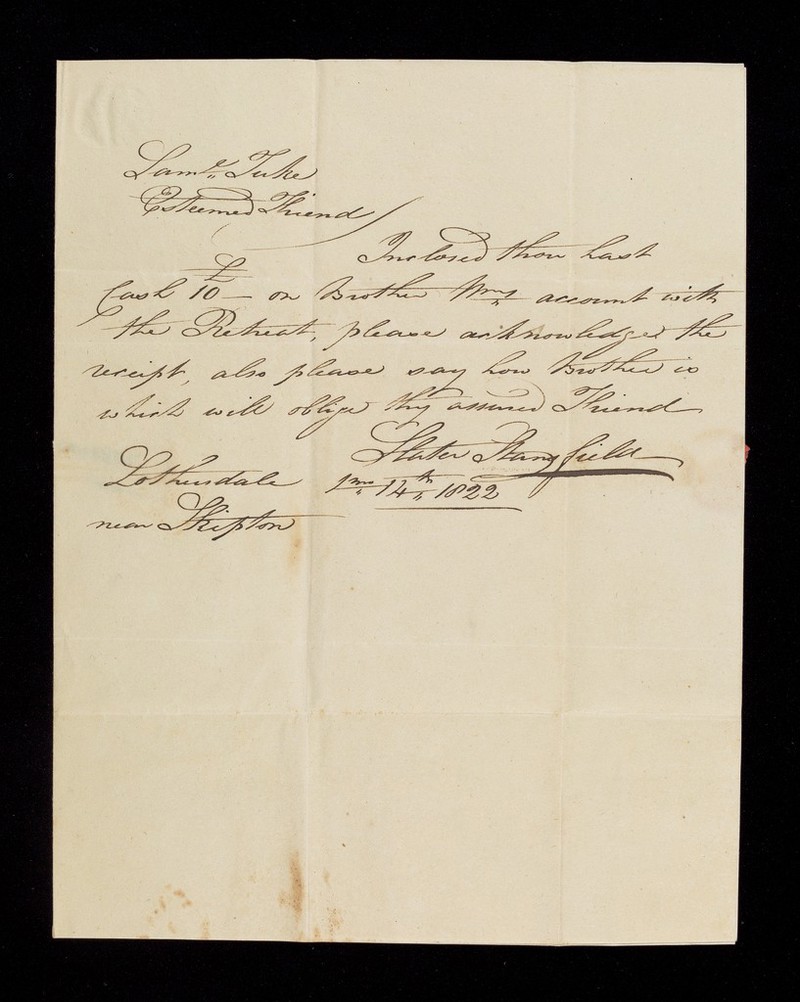 Saml. Tuke
Esteemed Friend
Inclosed thou hast
£
Cash 10 — on Brother Wms account with
the Retreat, please acknowledge the
receipt, also please say how Brother is
which will oblige thy assured Friend
Slater Stansfield
Lothersdale 1mo 14th 1822
near Skipton